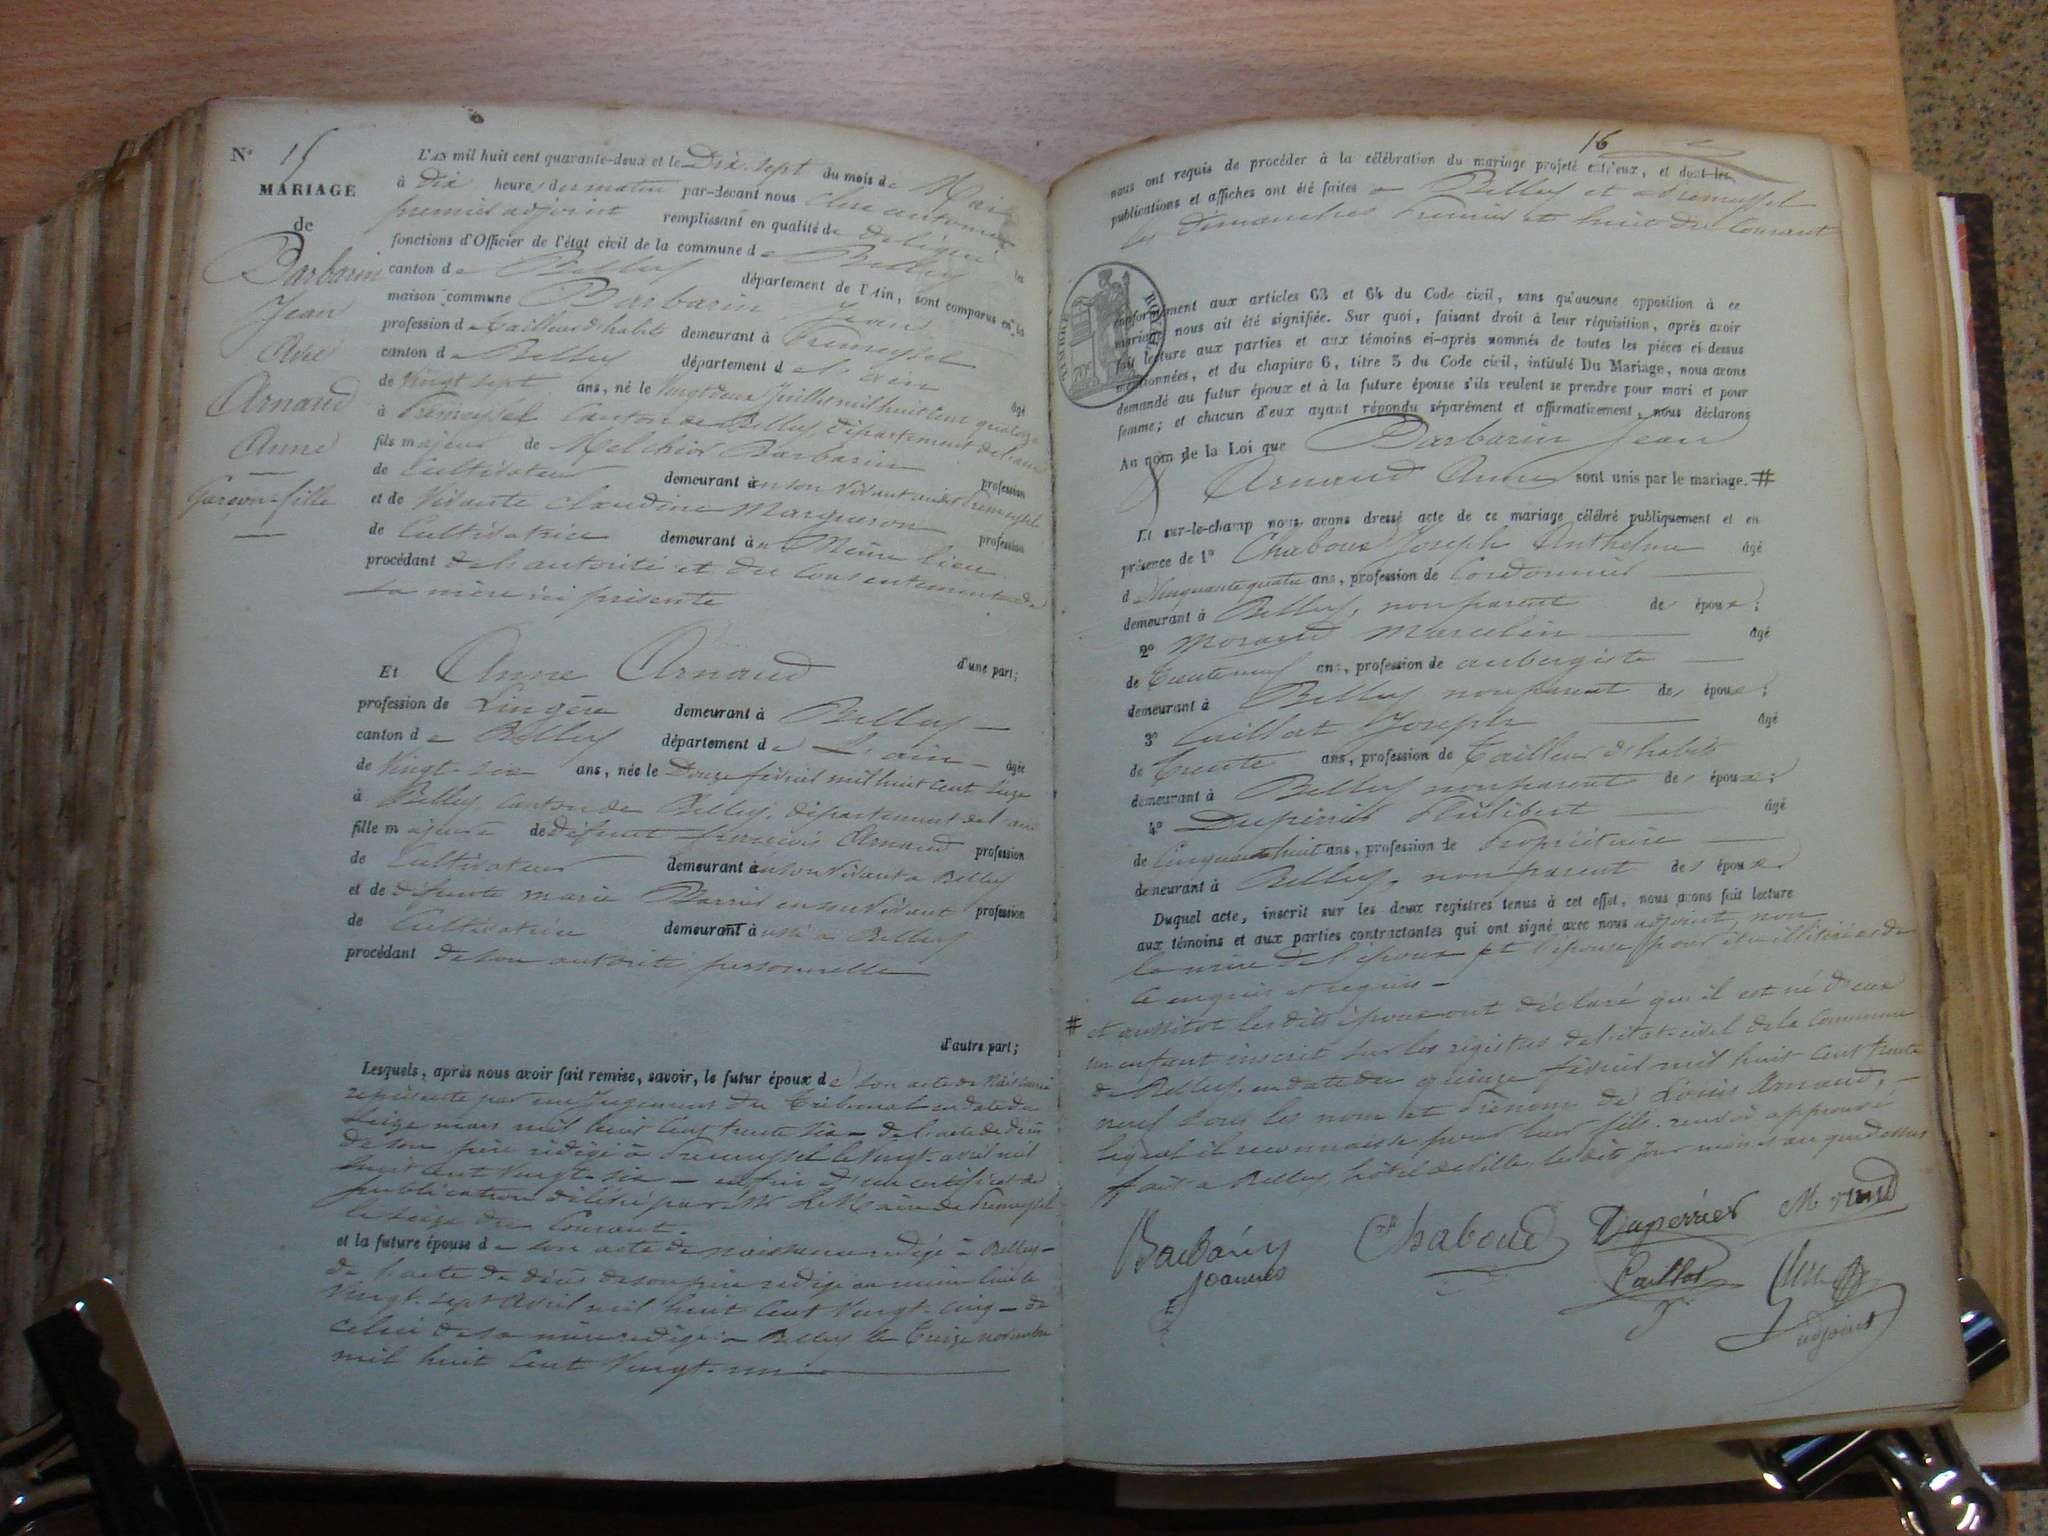 N° 15
MARIAGE
de
Barbarin
Jean
Avec
Arnaud
Anne
Garçon-fille
L'AN mil huit cent quarante-deux et le Dix-sept du mois de Mai
à Dix heures du matin par-devant nous Clerc antoine
premier adjoint remplissant en qualité de délégué les
fonctions d'Officier de l'état civil de la commune de Belley
canton de Belley département de l'Ain, sont comparus en la
maison commune Barbarin Jean
profession de tailleur d'habits demeurant à Premeyzel
canton de Belley département de l'ain âgé
de Vingt sept ans, né le Vingt deux Juillet mil huit cent quatorze
à Premeyzel Canton de Belley, département de l'ain
fils majeur de Melchior Barbarin profession
de Cultivateur demeurant en son vivant audit Premeyzel
et de Vivante Claudine Margueron profession
de Cultivatrice demeurant au Même lieu
procédant de l'autorité et du Consentement de
sa mère ici présente
d'une part;
Et Anne Arnaud
profession de Lingère demeurant à Belley
canton de Belley département de L'ain âgée
de Vingt-six ans, née le Douze février mil huit cent seize
à Belley Canton de Belley, département de l'ain
fille majeure de défunt françois Arnaud profession
de Cultivateur demeurant en son vivant à Belley
et de défunte marie en son vivant profession
de Cultivatrice demeurant aussi à Belley
procédant de son autorité personnelle
d'autre part;
Lesquels, après nous avoir fait remise, savoir, le futur époux de son acte de Naissance
représenté par un Jugement du Tribunal en date du
seize mars mil huit cent trente six – de l'acte de décès
de son père rédigé à Premeyzel le Vingt avril mil
huit cent Vingt-six – enfin d'un certificat de
publication délivré par Mr Le Maire de Premeyzel
le seize du Courant.
et la future épouse de son acte de naissance rédigé à Belley –
de l'acte de décès de son père rédigé au même lieu le
Vingt-sept avril mil huit Cent Vingt-cinq – de
celui de sa mère rédigé à Belley le treize novembre
mil huit Cent Vingt-un
16
nous ont requis de procéder à la célébration du mariage projeté entr'eux, et dont les
publications et affiches ont été faites à Belley et à Premeyzel
les dimanches Premier et huit du Courant
TIMBRE ROYAL
conformément aux articles 63 et 64 du Code civil, sans qu'aucune opposition à ce
mariage nous ait été signifiée. Sur quoi, faisant droit à leur réquisition, après avoir
fait lecture aux parties et aux témoins ci-après nommés de toutes les pièces ci-dessus
mentionnées, et du chapitre 6, titre 5 du Code civil, intitulé Du Mariage, nous avons
demandé au futur époux et à la future épouse s'ils veulent se prendre pour mari et pour
femme; et chacun d'eux ayant répondu séparément et affirmativement, nous déclarons
Au nom de la Loi que Barbarin Jean
& Arnaud Anne sont unis par le mariage. #
Et sur-le-champ nous avons dressé acte de ce mariage célébré publiquement et en
présence de 1° Chaboud Joseph Anthelme âgé
de Cinquante quatre ans, profession de Cordonnier
demeurant à Belley, non parent des époux;
2° Morand Marcelin âgé
de Trente neuf ans, profession de aubergiste
demeurant à Belley non parent des époux;
3° Caillat Joseph âgé
de Trente ans, profession de Tailleur d'habits
demeurant à Belley non parent des époux;
4° Duperrier Philibert âgé
de Cinquante huit ans, profession de Propriétaire
demeurant à Belley, non parent des époux
Duquel acte, inscrit sur les deux registres tenus à cet effet, nous avons fait lecture
aux témoins et aux parties contractantes qui ont signé avec nous adjoint, non
la mère de l'époux et l'épouse pour être illitérées de
ce enquis et requis –
# et aussitot les dits époux ont déclaré qu'il est né d'eux
un enfant inscrit sur les registres de l'état-civil de la Commune
de Belley, en date du quinze février mil huit Cent trente
neuf sous les nom et Prénom de Louis Arnaud, –
lequel il reconnaisse pour leur fils. renvoi approuvé
fait à Belley, hôtel de Ville, les dits Jour mois et an que dessus
Barbarin Chaboud Duperrier Morand
Joannes Caillat Clerc
adjoint